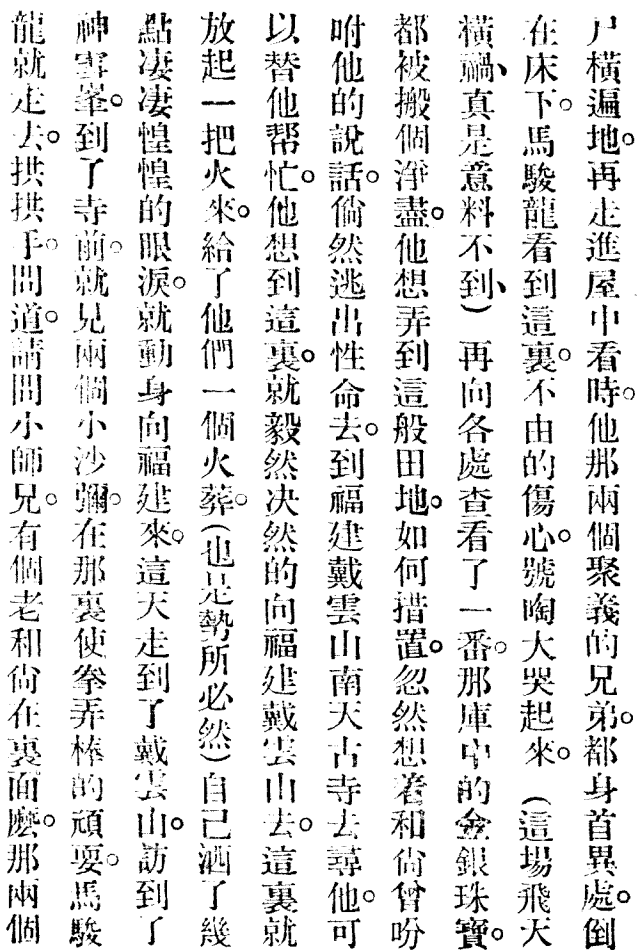 尸橫遍地。再走進屋中看時。他那兩個聚義的兄弟。都身首異處。倒
在床下。馬駿龍看到這裏。不由的傷心。號啕大哭起來。（這場飛天
橫禍、真是意料不到、）再向各處查看了一番。那庫中的金銀珠寶。
都被搬個淨盡。他想弄到這般田地。如何措置。忽然想着和尙曾吩
咐他的說話。倘然逃出性命去。到福建戴雲山南天古寺去尋他。可
以替他幫忙。他想到這裏。就毅然决然的向福建戴雲山去。這裏就
放起一把火來。給了他們一個火葬。（也是勢所必然）自己洒了幾
點凄凄惶惶的眼淚。就動身向福建來。這天走到了戴雲山。訪到了
神雲峯。到了寺前。就見兩個小沙彌。在那裏使拳弄棒的頑耍。馬駿
龍就走去。拱拱手。問道。請問小師兄。有個老和尙在裏面麽。那兩個